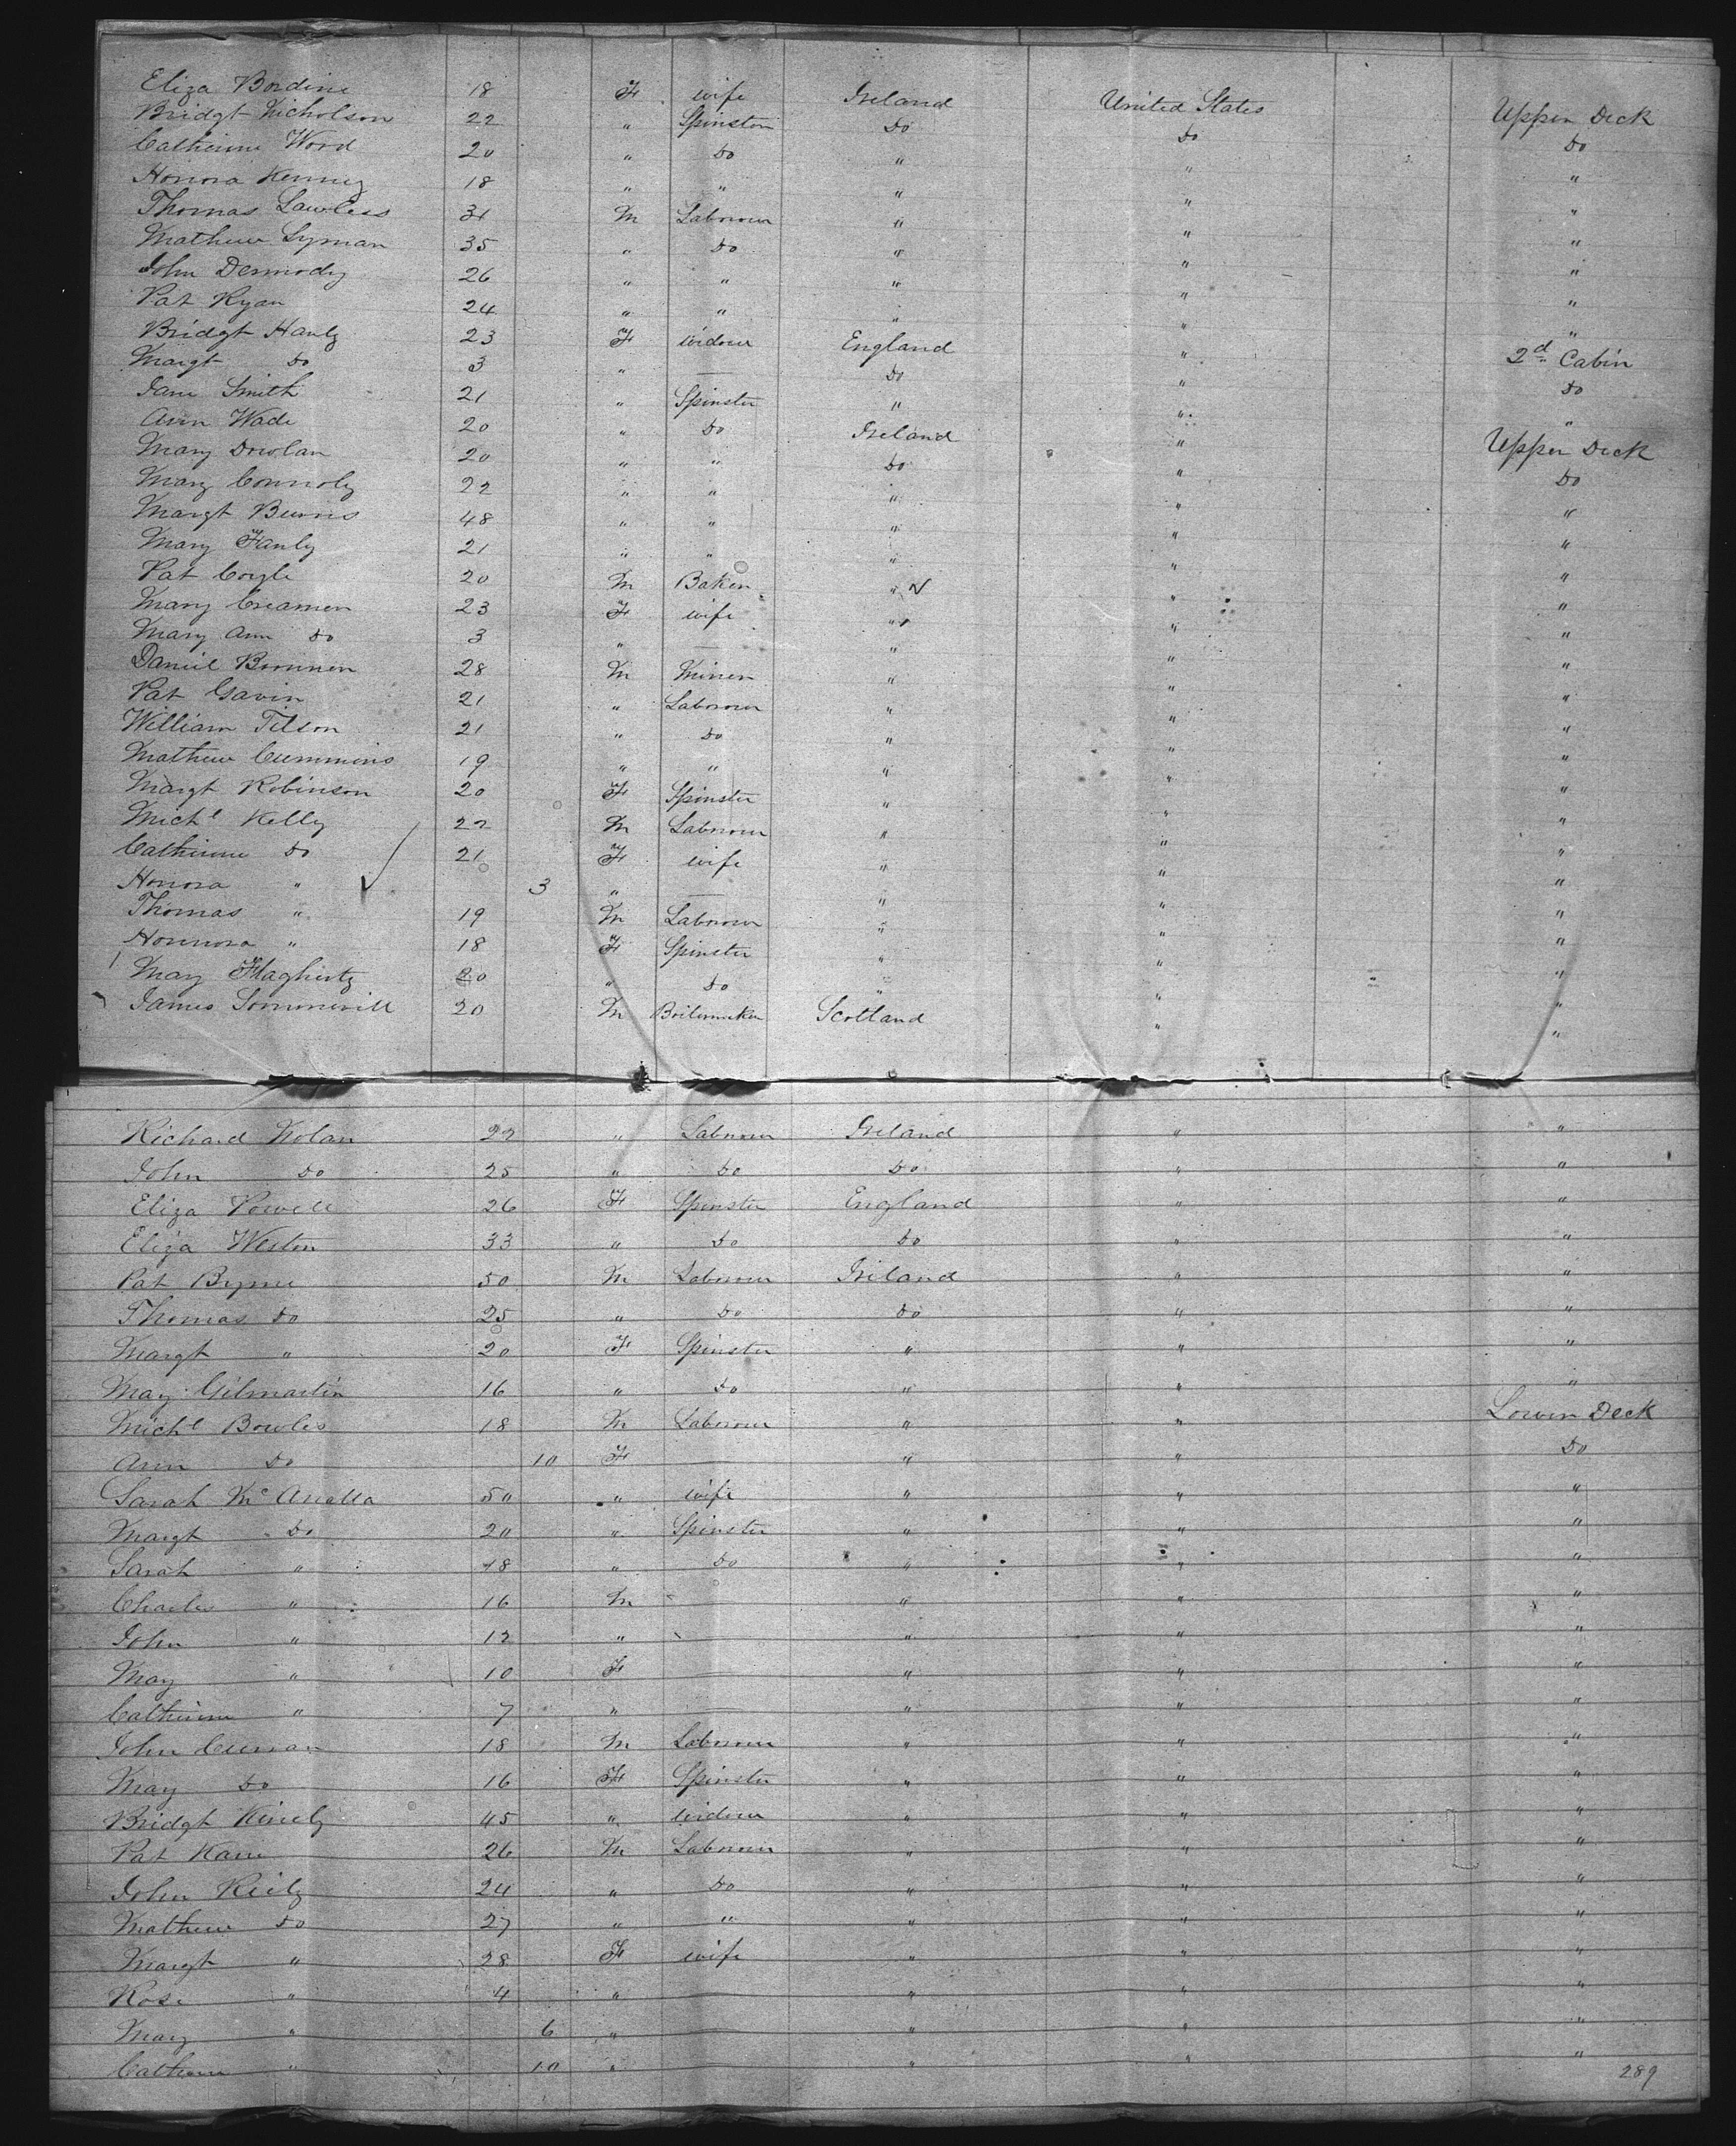 Eliza Bordine 18 F wife Ireland United States Upper Deck
Bridgt Nicholson 22 " Spinster Do Do Do
Catherine Wood 20 " Do " " "
Honora Kenny 18 " " " " "
Thomas Lawless 31 M Labourer " " "
Mathew Lyman 35 " Do " " "
John Dermody 26 " " " " "
Pat Ryan 24 " " " " "
Bridgt Hanly 23 F widow England " 2d Cabin
Margt Do 3 " — Do " Do
Jane Smith 21 " Spinster " " "
Ann Wade 20 " Do Ireland " Upper Deck
Mary Dowlan 20 " " Do " Do
Mary Connoly 22 " " " " "
Margt Burns 48 " " " " "
Mary Fanly 21 " " " " "
Pat Coyle 20 M Baker " " "
Mary Creamer 23 F wife " " "
Mary Ann Do 3 " — " " "
Daniel Brennen 28 M Miner " " "
Pat Gavin 21 " Labourer " " "
William Tilson 21 " Do " " "
Mathew Cummins 19 " " " " "
Margt Robinson 20 F Spinster " " "
Michl Kelly 22 M Labourer " " "
Catherine Do 21 F wife " " "
Honora " 3 " — " " "
Thomas " 19 M Labourer " " "
Honnora " 18 F Spinster " " "
Mary Flagherty 20 " Do " " "
James Sommerville 20 M Boilermaker Scotland " "
Richard Nolan 22 " Labourer Ireland " "
John Do 25 " Do Do " "
Eliza Powell 26 F Spinster England " "
Eliza Weston 33 " Do Do " "
Pat Byrne 50 M Labourer Ireland " "
Thomas Do 25 " Do Do " "
Margt " 20 F Spinster " " "
May Gilmartin 16 " Do " " "
Michl Bowles 18 M Labourer " " Lower Deck
Ann Do 10 F — " " Do
Sarah Mc 50 " wife " " "
Margt Do 20 " Spinster " " "
Sarah " 18 " Do " " "
Charles " 16 M — " " "
John " 12 " — " " "
May " 10 F — " " "
Catherine " 7 " — " " "
John Curran 18 M Labourer " " "
May Do 16 F Spinster " " "
Bridgt 45 " widow " " "
Pat Kane 26 M Labourer " " "
John Reily 24 " Do " " "
Mathew Do 27 " " " " "
Margt " 28 F wife " " "
Rose " 4 " — " " "
Mary " 6 " — " " "
Cathern " 10 " — " " "
289